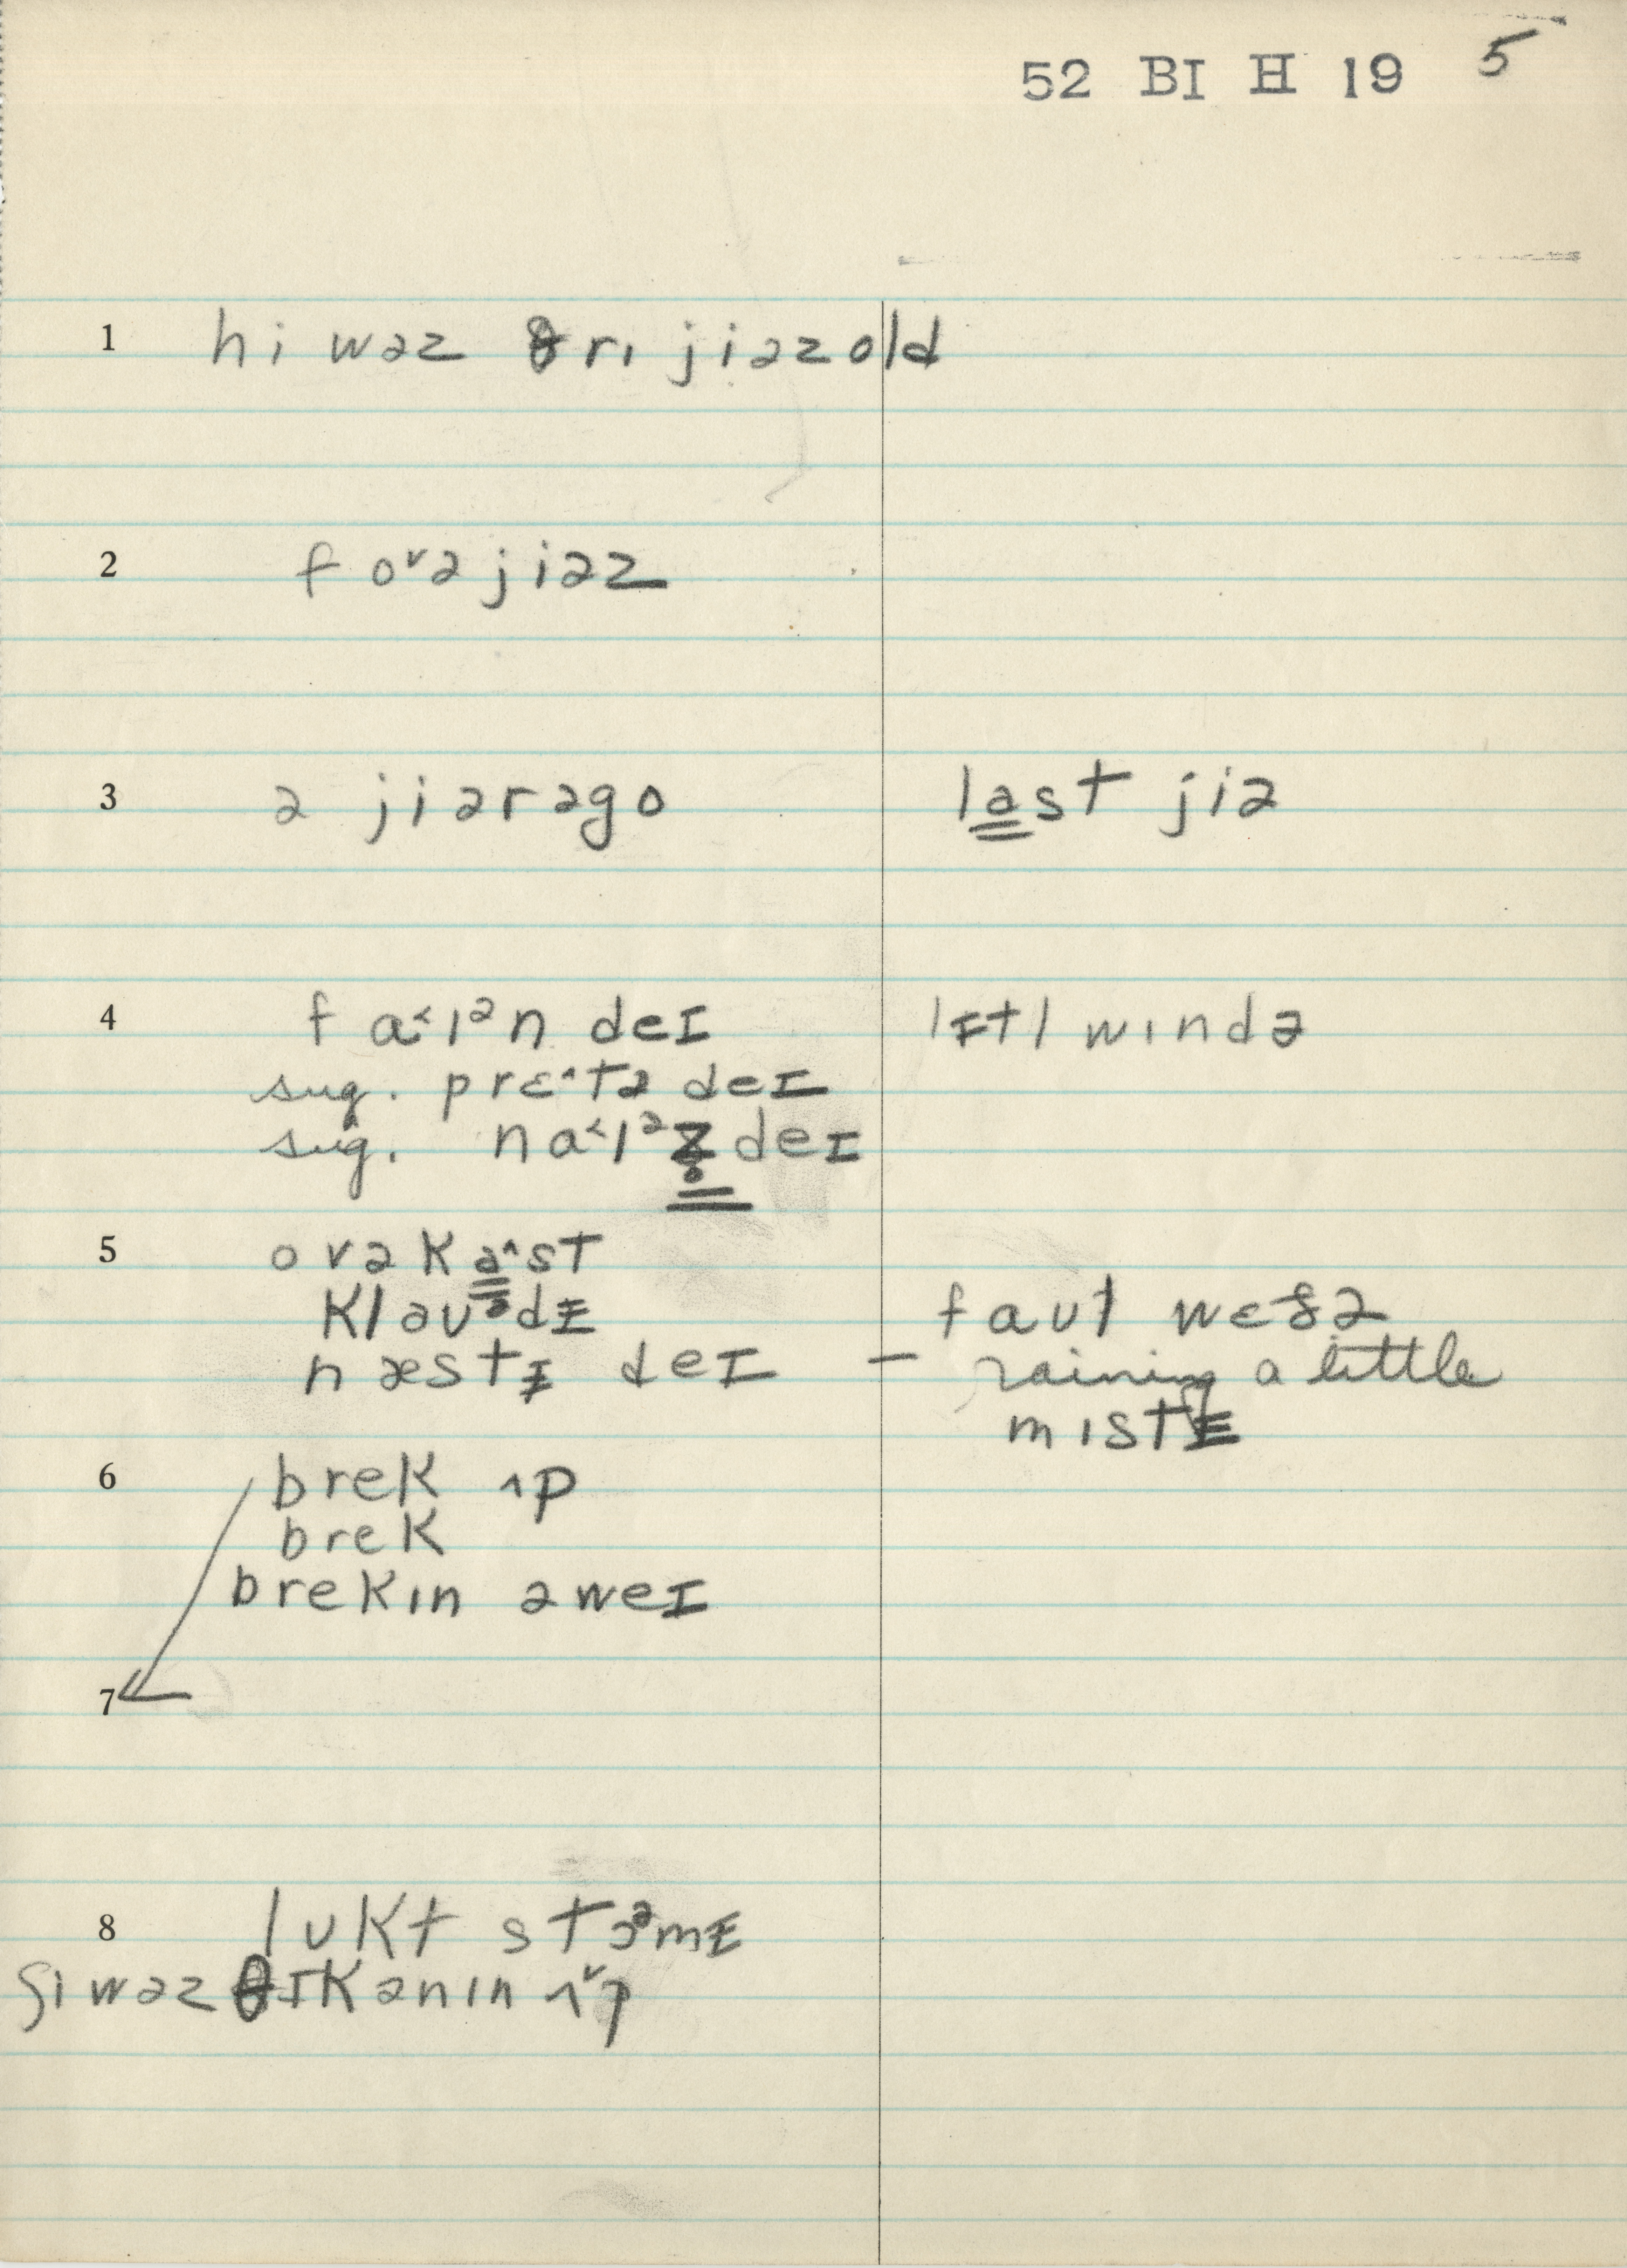 52 BI H 19 5
1 hi wəz θri jiəz old
2 f o˅ə jiəz
3 ə jiər əgo last jiə
4 f a˂lᵊn deɪ lɪtl wɪndə
sug. prɛ˄tə deɪ
sug. na˂lᵊz̥ deɪ
5 ovəka˄st
klaʊᵊdɪ faʊl wɛðə
næstɪ deɪ – raining a little
mɪstɪ
6 brek ʌp
brek
brekɪn əweɪ
7
8 lʊkt stɔᵊmɪ
ʃi wəz θɪkənɪn ʌ˅p